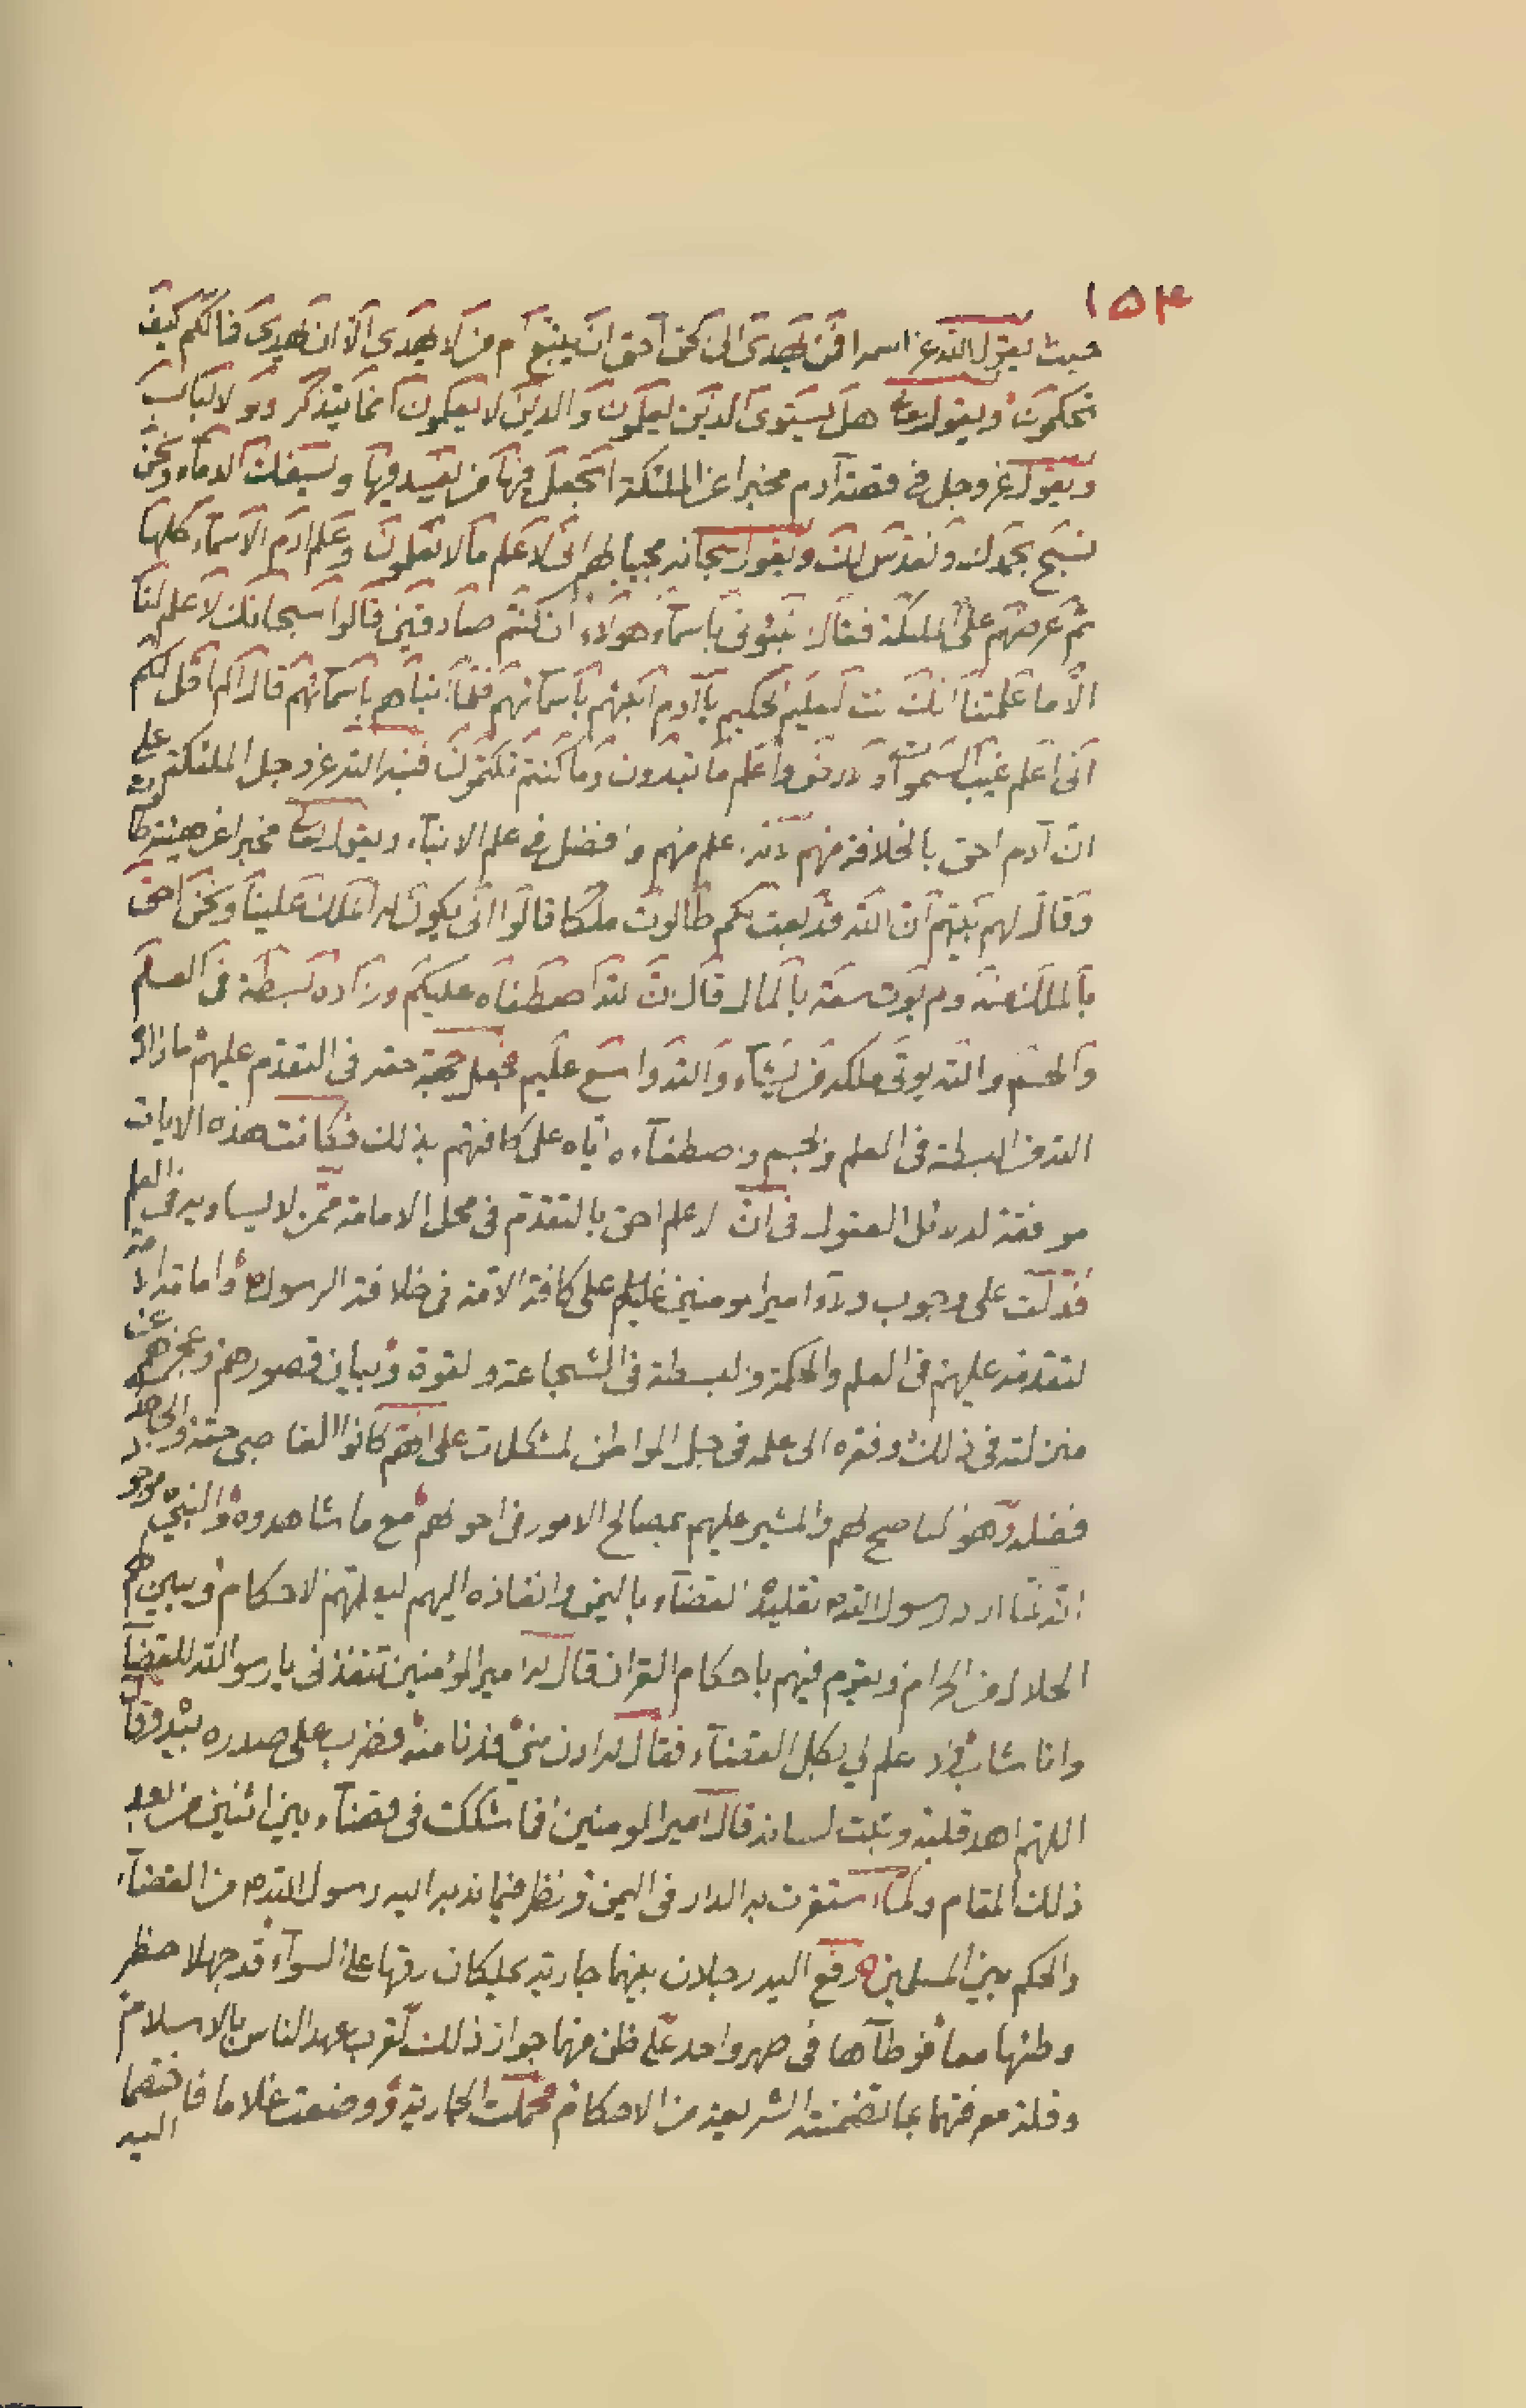 ١٥٤
حيث يقول الله عز اسمه افمن يهدى الى الحق احق ان يتبع ام من لا يهدى الا ان يهدى فما لكم كيف
تحكمون ويقول تعالى هل يستوى الذين يعلمون والذين لا يعلمون انما يتذكر اولوا الالباب
ويقول عز وجل فى قصة آدم مخبرا عن الملئكة اتجعل فيها من يفسد فيها ويسفك الدماء ونحن
نسبح بحمدك ونقدس لك ويقول سبحانه مجيبا لهم انى اعلم ما لا تعلمون وعلم ادم الاسماء كلها
ثم عرضهم على الملئكة فقال انبئونى باسماء هؤلاء ان كنتم صادقين قالوا سبحانك لا علم لنا
الا ما علمتنا انك انت العليم الحكيم يا آدم انبئهم باسمائهم فلما انباهم باسمائهم قال الم اقل لكم
انى اعلم غيب السموات والارض واعلم ما تبدون وما كنتم تكتمون فنبه الله عز وجل الملئكة على
ان آدم احق بالخلافة منهم لانه اعلم منهم وافضل فى علم الانباء ويقول تعالى مخبرا عن قصة طالوت
وقال لهم نبيهم ان الله قد بعث لكم طالوت ملكا قالوا انى يكون له الملك علينا ونحن احق
بالملك منه ولم يؤت سعة بالمال قال ان الله اصطفاه عليكم وزاده بسطة فى العلم
والجسم والله يؤتى ملكه من يشاء والله واسع عليم فجعل جهة حقه فى التقدم عليهم ما زاده
الله من البسطة فى العلم والجسم واصطفاءه اياه على كافتهم بذلك فكانت هذه الايات
موافقة لدلائل العقول فى ان الاعلم احق بالتقدم فى محل الامامة ممن لا يساويه فى العلم
فدلت على وجوب ولاء امير المومنين عليه السلم على كافة الامة فى خلافة الرسول ص وامامة الامة
لتقدمه عليهم فى العلم والحكمة والبسطة فى الشجاعة والقوة وبيان قصورهم وعجزهم عن
منزلته فى ذلك وفقره الى علمه فى جل المواطن المشكلات على انهم كانوا الغاصبى حقه والجاحد
فضله وهو الناصح لهم والمشير عليهم بمصالح الامور فى احوالهم مع ما شاهدوه والنبى ص موجو
انه لما اراد رسول الله ص تقليده القضاء باليمن وانفاذه اليهم ليعلمهم الاحكام ويبين لهم
الحلال من الحرام ويقوم فيهم باحكام القران قال له امير المؤمنين تنفذنى يا رسول الله للقضاء
وانا شاب ولا علم لي بكل القضاء فقال له ادن منى فدنا منه فضرب على صدره بيده وقال
اللهم اهد قلبه وثبت لسانه قال امير المومنين فما شككت فى قضاء بين اثنين من بعد
ذلك المقام ولما استقرت به الدار فى اليمن ونظر فيما ندبه اليه رسول الله ص من القضاء
والحكم بين المسلمين رفع اليه رجلان بينهما جارية يملكان رقها على السواء قد جهلا حظر
وطئها معا فوطآها فى طهر واحد على ظن منهما جواز ذلك لقرب عهد الناس بالاسلام
وقلة معرفتهما بما تضمنته الشريعة من الاحكام فحملت الجارية ووضعت غلاما فاختصما
اليه